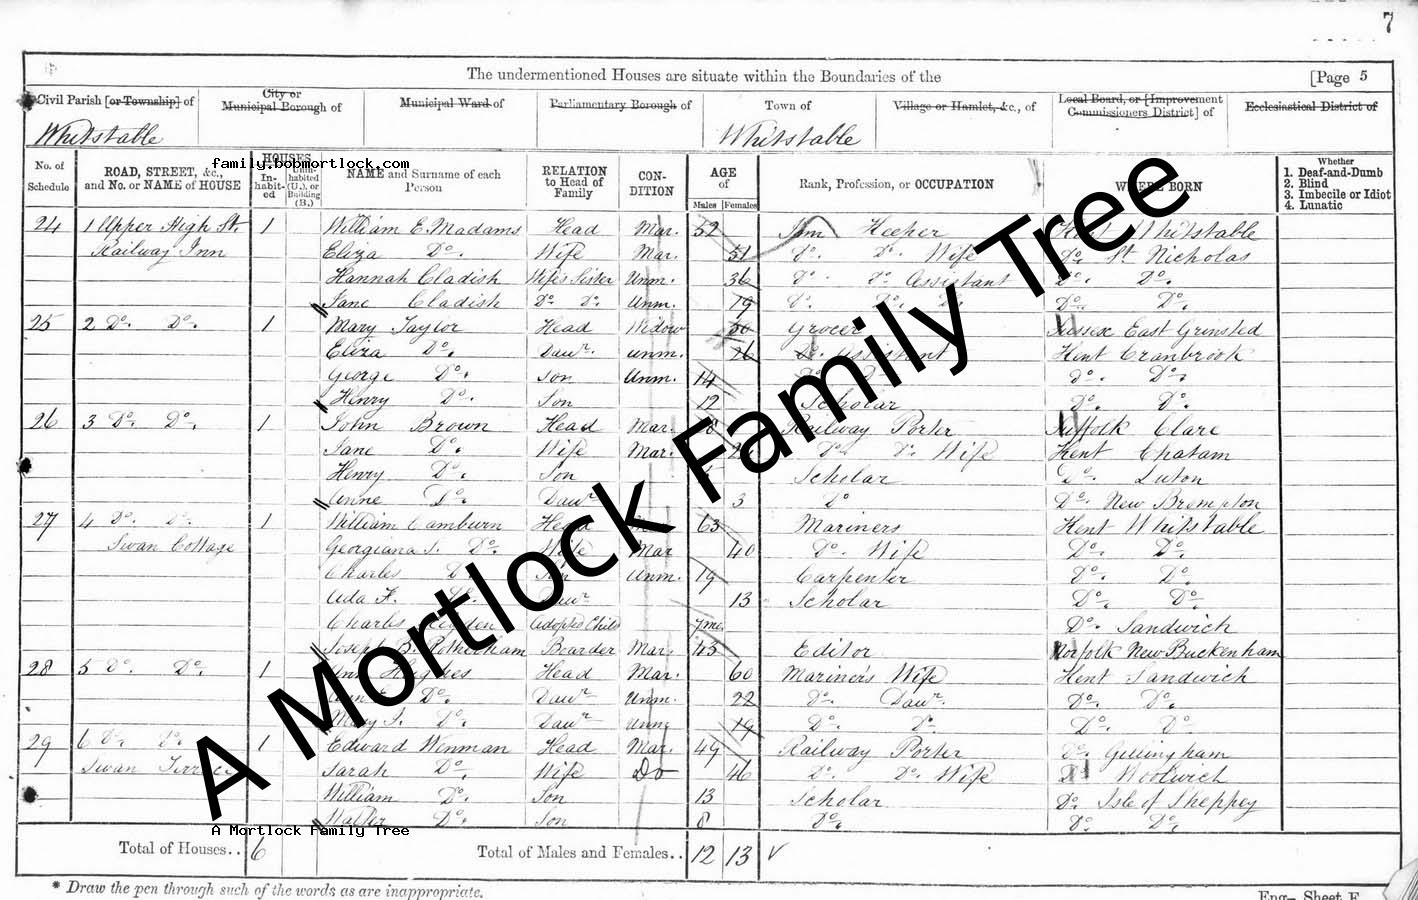 7
The undermentioned Houses are situate within the Boundaries of the [Page 5
Civil Parish [or Township] of City or Municipal Borough of Municipal Ward of Parliamentary Borough of Town of Village or Hamlet, &c., of Local Board, or [Improvement Commissioners District] of Ecclesiastical District of
Whitstable Whitstable
family.bobmortlock.com
No. of Schedule ROAD, STREET, &c., and No. or NAME of HOUSE HOUSES In-habit-ed Unin-habited (U.), or Building (B.) NAME and Surname of each Person RELATION to Head of Family CON-DITION AGE of Males Females Rank, Profession, or OCCUPATION WHERE BORN Whether 1. Deaf-and-Dumb 2. Blind 3. Imbecile or Idiot 4. Lunatic
24 1 Upper High St. 1 William E. Madams Head Mar. 52 Inn Keeper Kent Whitstable
Railway Inn Eliza Do. Wife Mar. 51 Do. Do. Wife Do. St. Nicholas
Hannah Cladish Wife's Sister Unm. 36 Do. Do. Assistant Do. Do.
Jane Cladish Do. Do. Unm. 19 Do. Do. Do. Do.
25 2 Do. Do. 1 Mary Taylor Head Widow 50 Grocer Sussex East Grinsted
Eliza Do. Daur. Unm. 26 Do. Assistant Kent Cranbrook
George Do. Son Unm. 14 Do. Do. Do.
Henry Do. Son 12 Scholar Do. Do.
26 3 Do. Do. 1 John Brown Head Mar. Railway Porter Suffolk Clare
Jane Do. Wife Mar. Do. Do. Wife Kent Chatam
Henry Do. Son Scholar Do. Luton
Anne Do. Daur. 3 Do Do. New Brompton
27 4 Do. Do. 1 William Camburn Head 63 Mariners Kent Whitstable
Swan Cottage Georgiana S. Do. Wife Mar 40 Do. Wife Do. Do.
Charles Do Son Unm. 19 Carpenter Do. Do.
Ada F. Do. Daur 13 Scholar Do. Do.
Charles Adopted Child 7mo Do. Sandwich
Joseph B. Rotherham Boarder Mar. 45 Editor Norfolk New Buckenham
28 5 Do. Do. 1 Ann Hughes Head Mar. 60 Mariner's Wife Kent Sandwich
Ann Do. Daur Unm. 22 Do. Daur. Do. Do.
Mary Do. Daur Unm 19 Do. Do. Do. Do
29 6 Do. Do. 1 Edward Wenman Head Mar. 49 Railway Porter Do. Gillingham
Swan Terrace Sarah Do. Wife Do 46 Do. Do. Wife Do Woolwich
William Do. Son 13 Scholar Do. Isle of Sheppey
Walter Do. Son 8 Do. Do. Do.
A Mortlock Family Tree
A Mortlock Family Tree
Total of Houses.. 6 Total of Males and Females.. 12 13
* Draw the pen through such of the words as are inappropriate.
Eng— Sheet F.